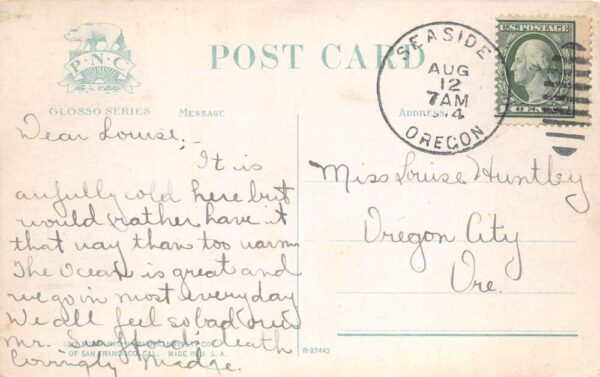 P·N·C
GLOSSO SERIES
POST CARD
MESSAGE
ADDRESS
SEASIDE
AUG
12
7 AM
OREGON
U.S. POSTAGE
Dear Louise;
It is
awfully cold here but
would rather have it
that way than too warm
The Ocean is great and
we go in most everyday
We all feel so bad over
Mr. death
Lovingly Madge.
OF SAN FRANCISCO, CAL. MADE IN U. S. A.
R-27443
Miss Louise Huntley
Oregon City
Ore.